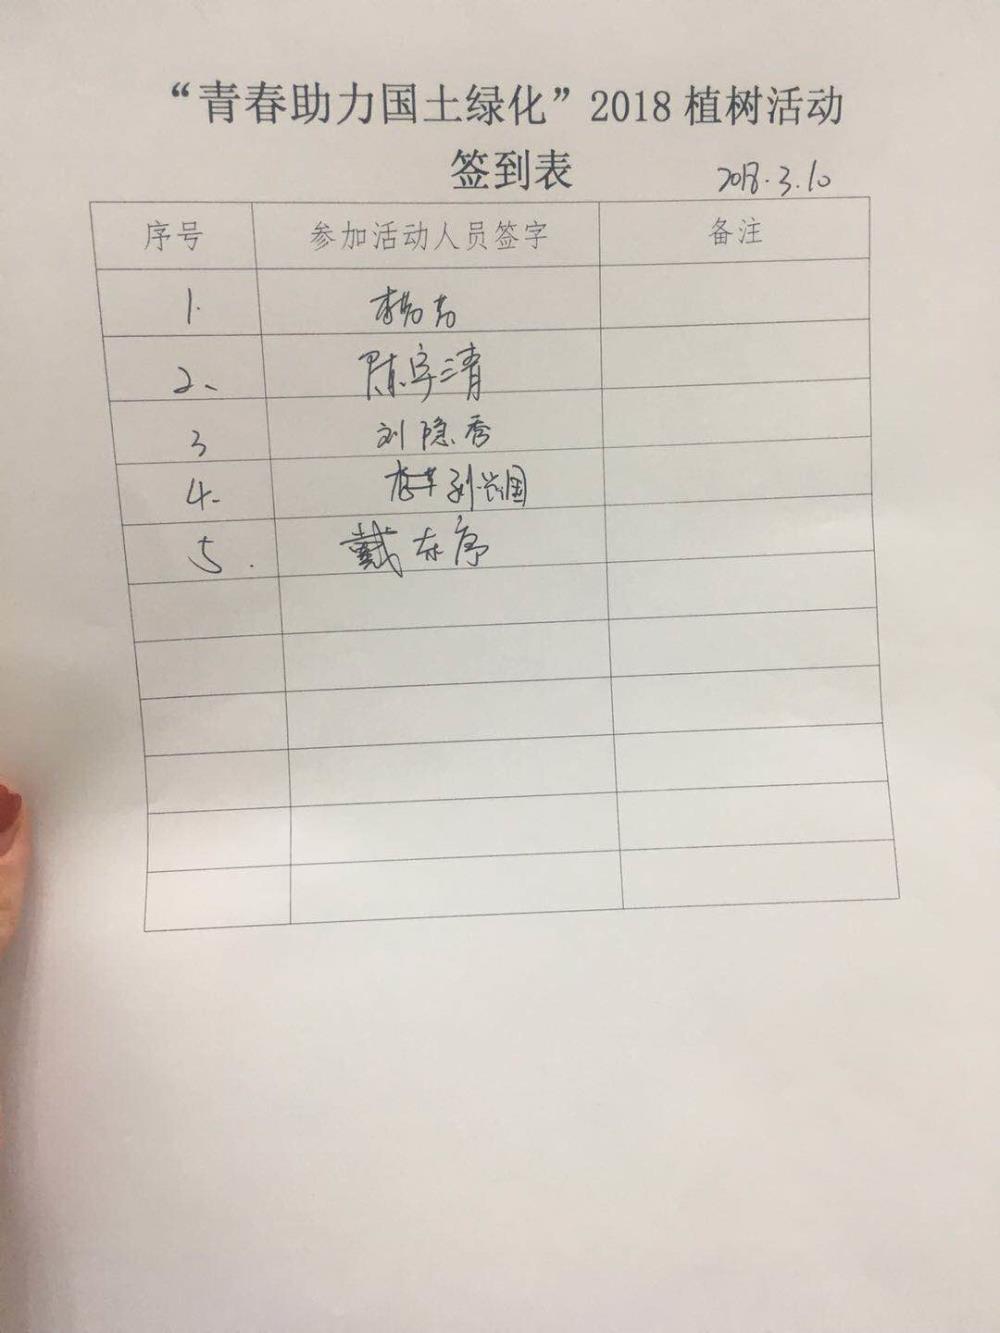 “青春助力国土绿化”2018植树活动
签到表 2018.3.10
序号 参加活动人员签字 备注
1.
2、 陈宇清
3 刘隐秀
4. 刘兴国
5. 戴东序